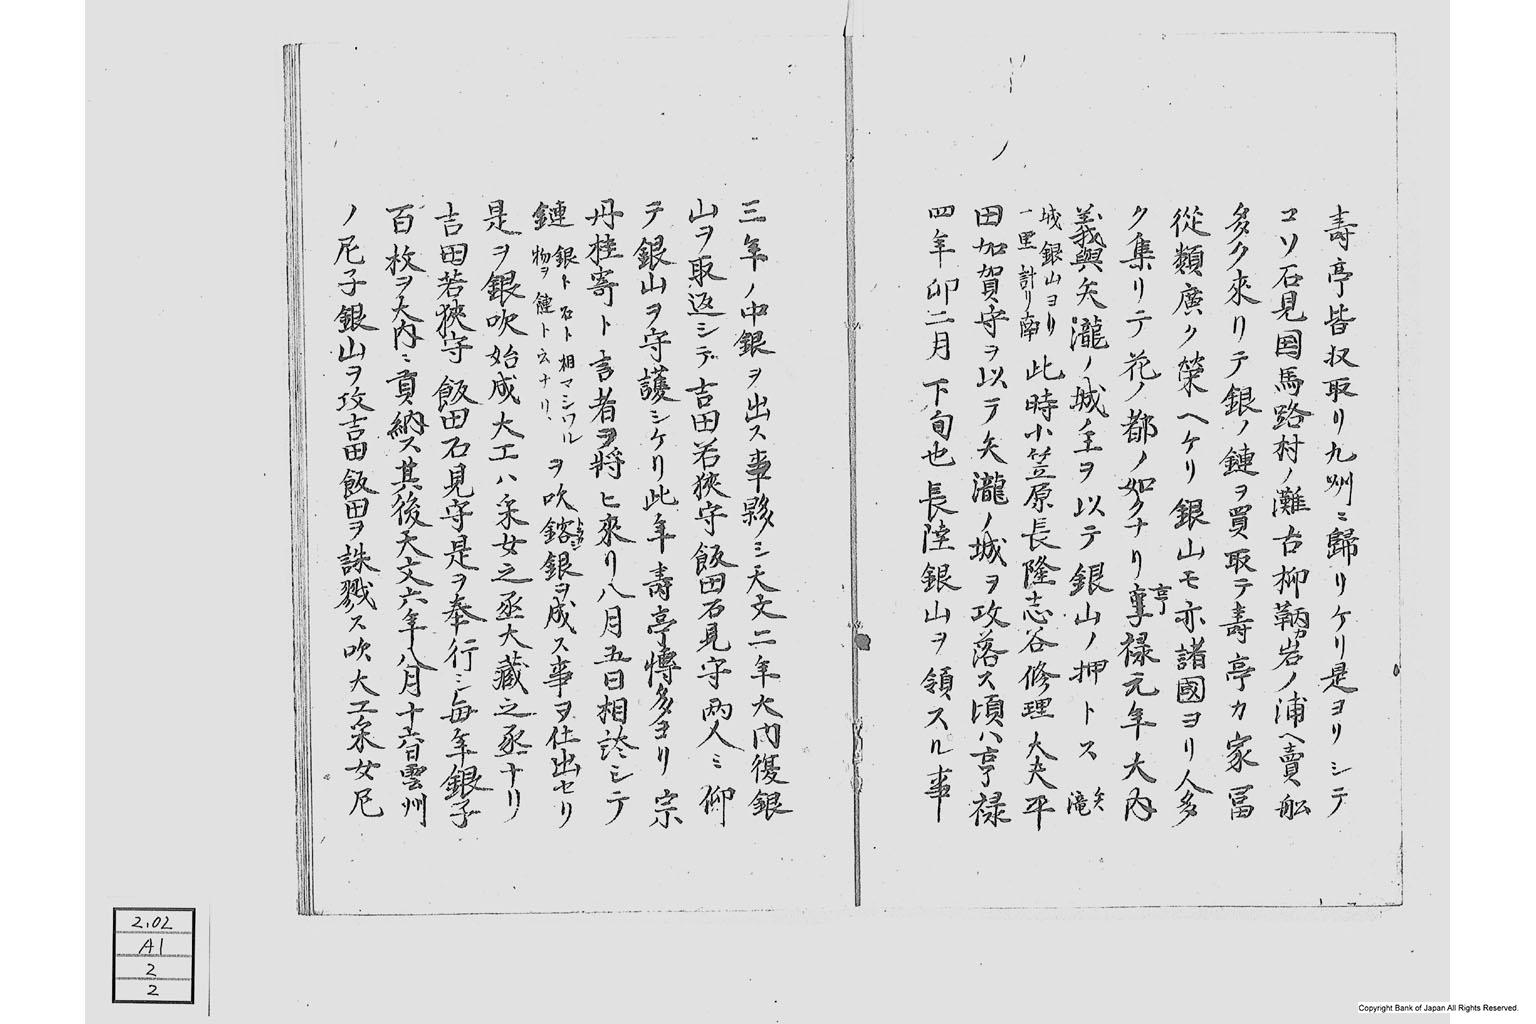 壽亭皆収取リ九州ニ歸リケリ是ヨリシテ
コソ石見国馬路村ノ灘古柳鞆岩ノ浦ヘ賣舩
多ク來リテ銀ノ鏈ヲ買取テ壽亭カ家冨
從類廣ク榮ヘケリ銀山モ亦諸國ヨリ人多
ク集リテ花ノ都ノ如クナリ享禄元年大内
義興矢瀧ノ城ノ主ヲ以テ銀山ノ押トス 矢滝
城銀山ヨリ
一里計リ南 此時小笠原長隆志谷修理大夫平
田加賀守ヲ以テ矢瀧ノ城ヲ攻落ス頃ハ享禄
四年卯二月下旬也長隆銀山ヲ領スル事
三年ノ中銀ヲ出ス事夥シ天文二年大内復銀
山ヲ取返シテ吉田若狹守飯田石見守両人ニ仰
テ銀山ヲ守護シケリ此年壽亭博多ヨリ宗
丹桂寄ト言者ヲ將ヒ來リ八月五日相談シテ
鏈 銀ト石ト相マシワル
物ヲ鏈ト云ナリ、 ヲ吹鎔銀ヲ成ス事ヲ仕出セリ
是ヲ銀吹始成大工ハ采女之丞大藏之丞ナリ
吉田若狹守飯田石見守是ヲ奉行シ毎年銀子
百枚ヲ大内ニ貢納ス其後天文六年八月十六日雲州
ノ尼子銀山ヲ攻吉田飯田ヲ誅戮ス吹大工采女尼
2.02
A1
2
2
Copyright Bank of Japan All Rights Reserved.